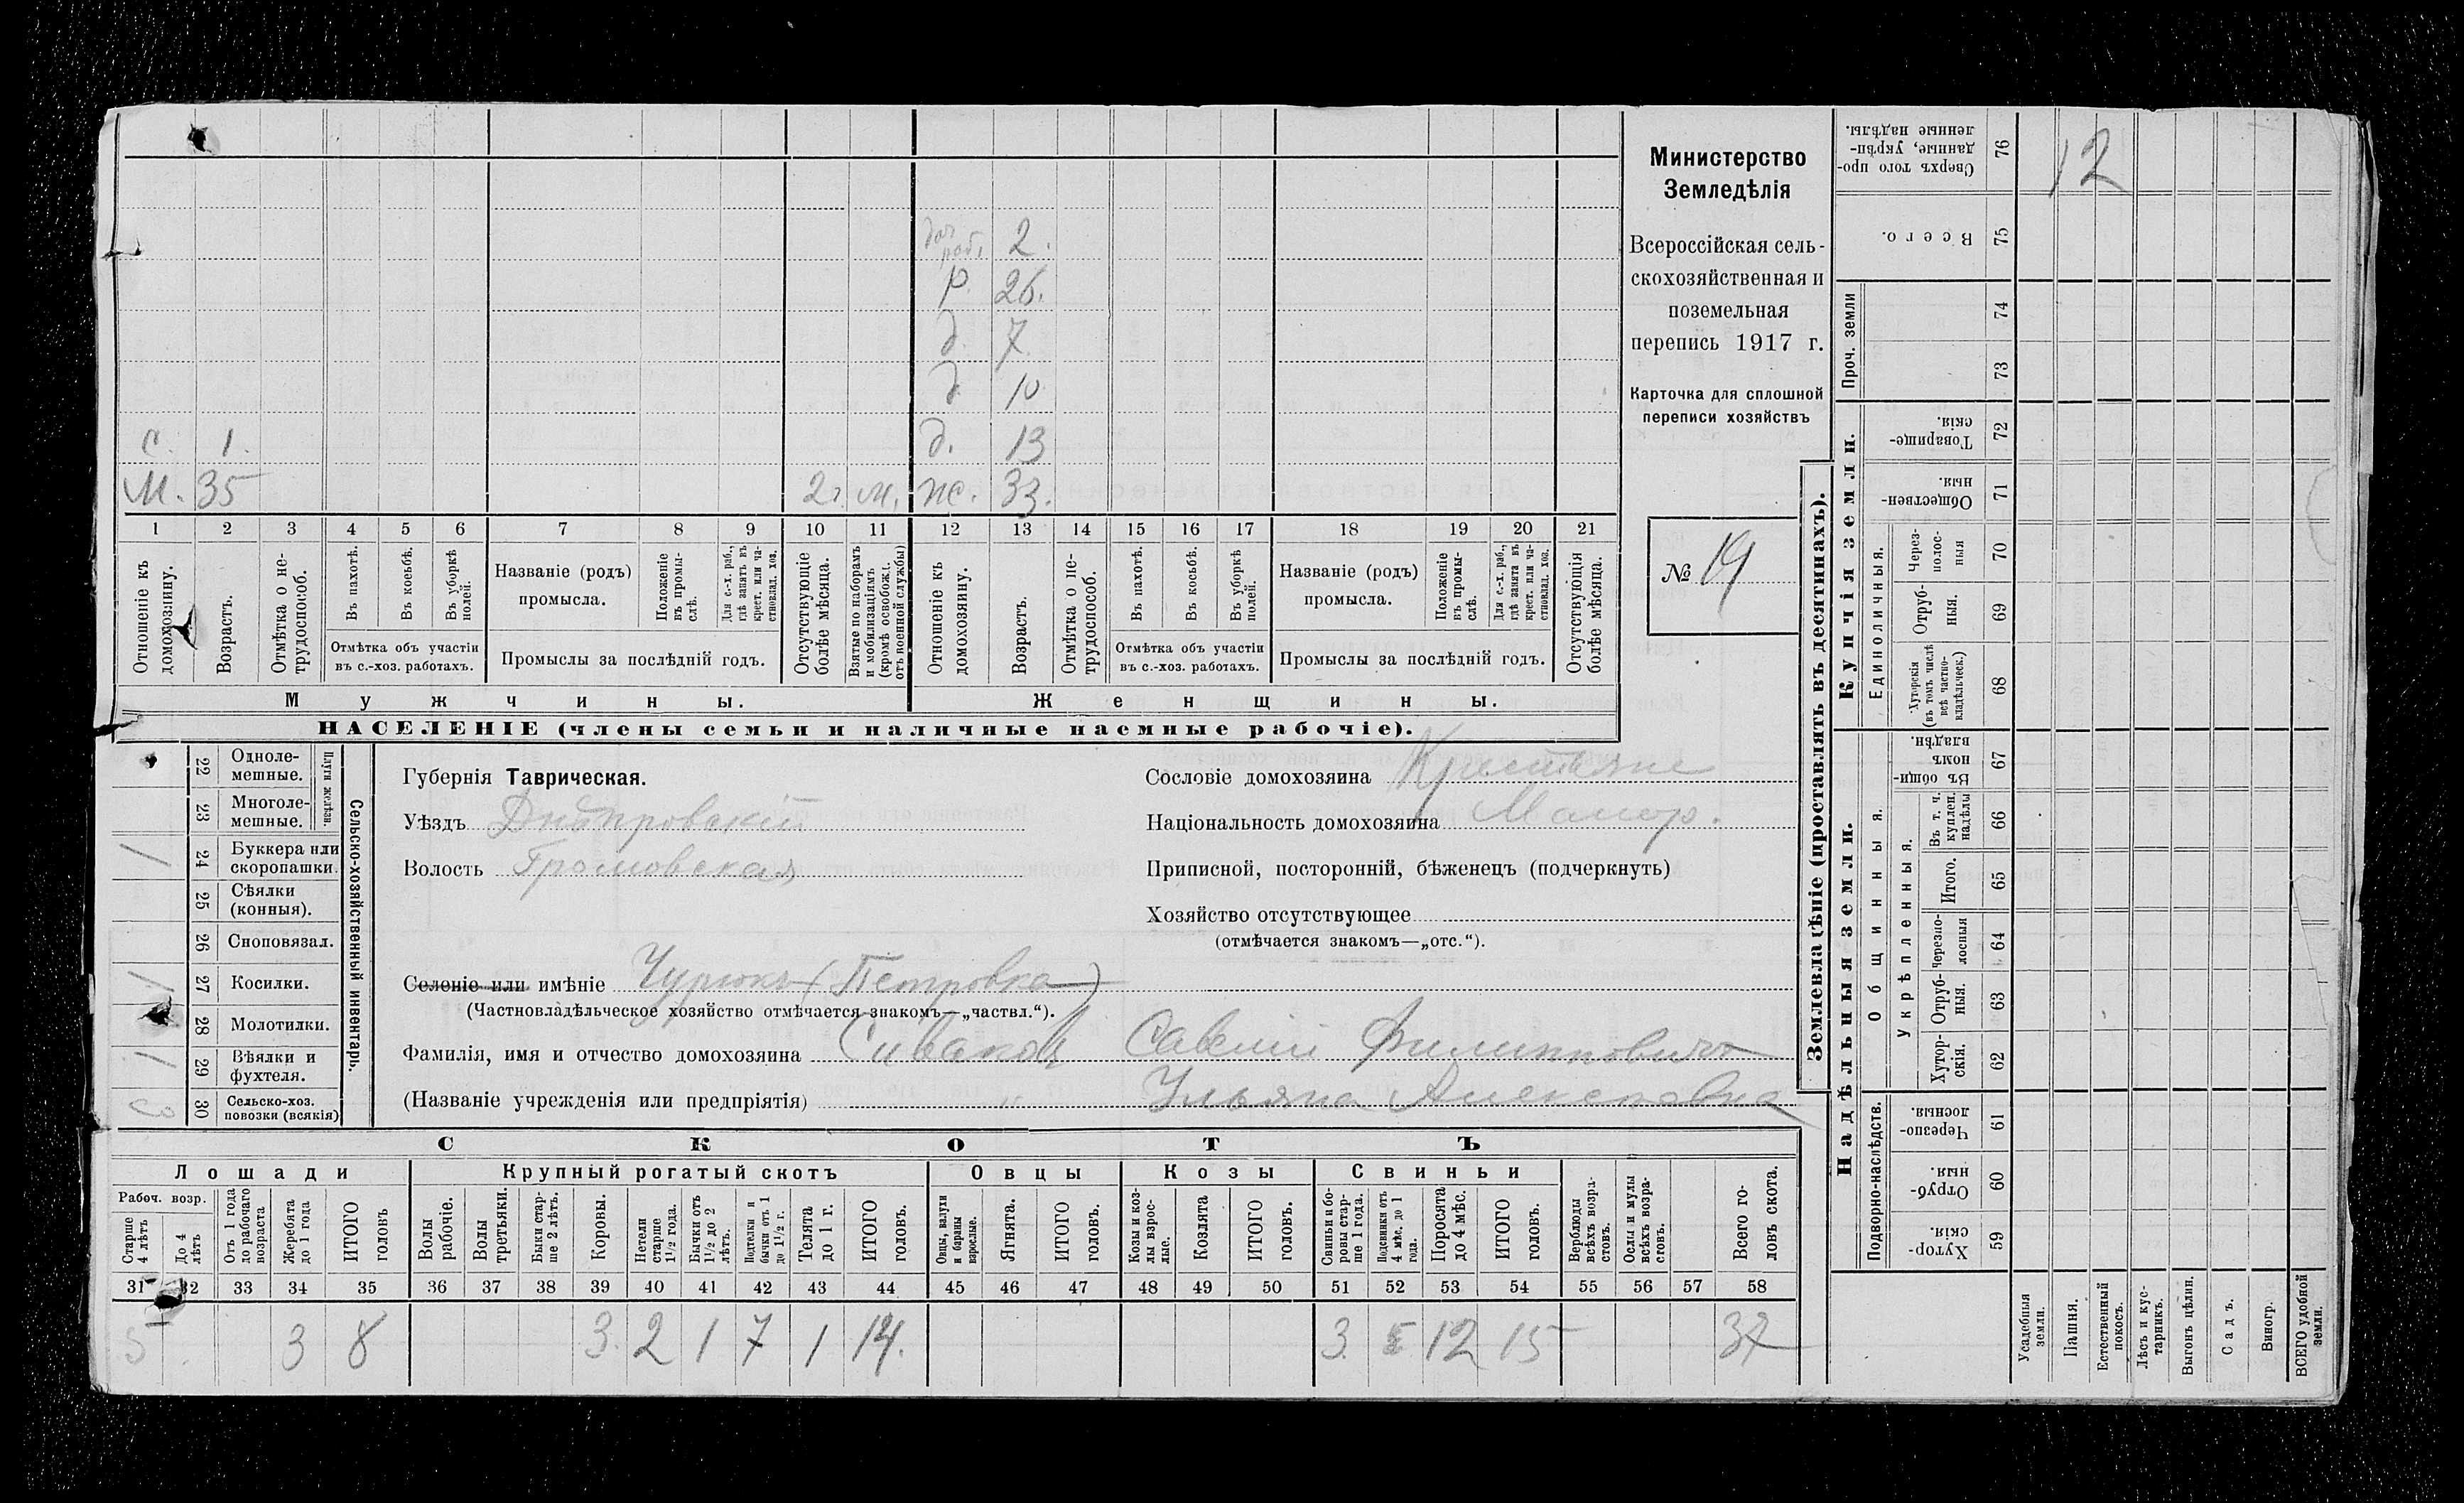 с. 1.
М. 35 2 г. м.
доч. раб. 2.
р. 26.
д. 7
д. 10
д. 13
ж. 33.
1 2 3 4 5 6 7 8 9 10 11 12 13 14 15 16 17 18 19 20 21
Отношеніе къ домохозяину.
Возрастъ.
Отмѣтка о не-
трудоспособ.
Въ пахотѣ.
Въ косьбѣ.
Въ уборкѣ полей.
Отмѣтка объ участіи
въ с.-хоз. работахъ.
Названіе (родъ)
промысла.
Положеніе въ промы-
слѣ.
Для с.-х. раб., гдѣ занятъ въ крест. или ча-
стновлад. хоз.
Промыслы за послѣдній годъ.
Отсутствующіе болѣе мѣсяца.
Взятые по наборамъ и мобилизаціямъ (кромѣ освобожд. отъ военной службы)
Отношеніе къ домохозяину.
Возрастъ.
Отмѣтка о не-
трудоспособ.
Въ пахотѣ.
Въ косьбѣ.
Въ уборкѣ полей.
Отмѣтка объ участіи
въ с.-хоз. работахъ.
Названіе (родъ)
промысла.
Положеніе въ промы-
слѣ.
Для с.-х. раб., гдѣ занята въ крест. или ча-
стновлад. хоз.
Промыслы за послѣдній годъ.
Отсутствующія болѣе мѣсяца.
Мужчины.
Женщины.
НАСЕЛЕНІЕ (члены семьи и наличные наемные рабочіе).
Министерство
Земледѣлія
Всероссійская сель-
скохозяйственная и
поземельная
перепись 1917 г.
Карточка для сплошной
переписи хозяйствъ
№ 19
Сельско-хозяйственный инвентарь.
Плуги желѣзн.
22 Одноле-
мешные.
23 Многоле-
мешные.
/ 24 Буккера или
скоропашки.
25 Сѣялки
(конныя).
26 Сноповязал.
/ 27 Косилки.
28 Молотилки.
/ 29 Вѣялки и
фухтеля.
30 Сельско-хоз.
повозки (всякія)
Губернія Таврическая.
Уѣздъ Днѣпровскій
Волость Громовская
Селеніе или имѣніе Чурюкъ (Петровка)
(Частновладѣльческое хозяйство отмѣчается знакомъ—„частвл.“).
Фамилія, имя и отчество домохозяина Сиваков Савелій Филипповичъ
(Названіе учрежденія или предпріятія) Ульяна Алексѣевна
Сословіе домохозяина Крестьяне
Національность домохозяина Малор.
Приписной, посторонній, бѣженецъ (подчеркнуть)
Хозяйство отсутствующее
(отмѣчается знакомъ—„отс.“).
СКОТЪ
Лошади
Крупный рогатый скотъ
Овцы
Козы
Свиньи
Рабоч. возр.
Старше 4 лѣтъ
До 4 лѣтъ
Отъ 1 года до рабочаго возраста
Жеребята до 1 года
ИТОГО головъ
Волы рабочіе.
Волы третьяки.
Быки стар-
ше 2 лѣтъ.
Коровы.
Нетели старше 1½ года.
Бычки отъ 1½ до 2 лѣтъ.
Подтелки и бычки отъ 1 до 1½ г.
Телята до 1 г.
ИТОГО головъ.
Овцы, валухи и бараны взрослые.
Ягнята.
ИТОГО головъ.
Козы и коз-
лы взрос-
лые.
Козлята
ИТОГО головъ.
Свиньи и бо-
ровы стар-
ше 1 года.
Подсвинки отъ 4 мѣс. до 1 года.
Поросята до 4 мѣс.
ИТОГО головъ.
Верблюды всѣхъ возра-
стовъ.
Ослы и мулы всѣхъ возра-
стовъ.
Всего го-
ловъ скота.
31 32 33 34 35 36 37 38 39 40 41 42 43 44 45 46 47 48 49 50 51 52 53 54 55 56 57 58
5 3 8 3. 2 1 7 1 14. 3. 12 15 37
Землевладѣніе (проставлять въ десятинахъ).
Надѣльныя земли.
Купчія земли.
Проч. земли
Подворно-наслѣдств.
Общинныя.
Укрѣпленныя.
Единоличныя.
Сверхъ того про-
данные, укрѣп-
ленные надѣлы.
76
12
Всего.
75
74
73
Товарище-
скія.
72
Обществен-
ныя.
71
Через-
полос-
ныя
70
Отруб-
ныя.
69
Хуторскія (въ томъ числѣ всѣ частно-
владѣльческ.)
68
Въ общин-
номъ
владѣн.
67
Въ т. ч. куплен. надѣлы
66
Итого.
65
Черезпо-
лосныя
64
Отруб-
ныя.
63
Хутор-
скія.
62
Черезпо-
лосныя.
61
Отруб-
ныя.
60
Хутор-
скія.
59
Усадебныя земли.
Пашня.
Естественный покосъ.
Лѣсъ и кус-
тарникъ.
Выгонъ цѣлин.
Садъ.
Виногр.
ВСЕГО удобной земли.